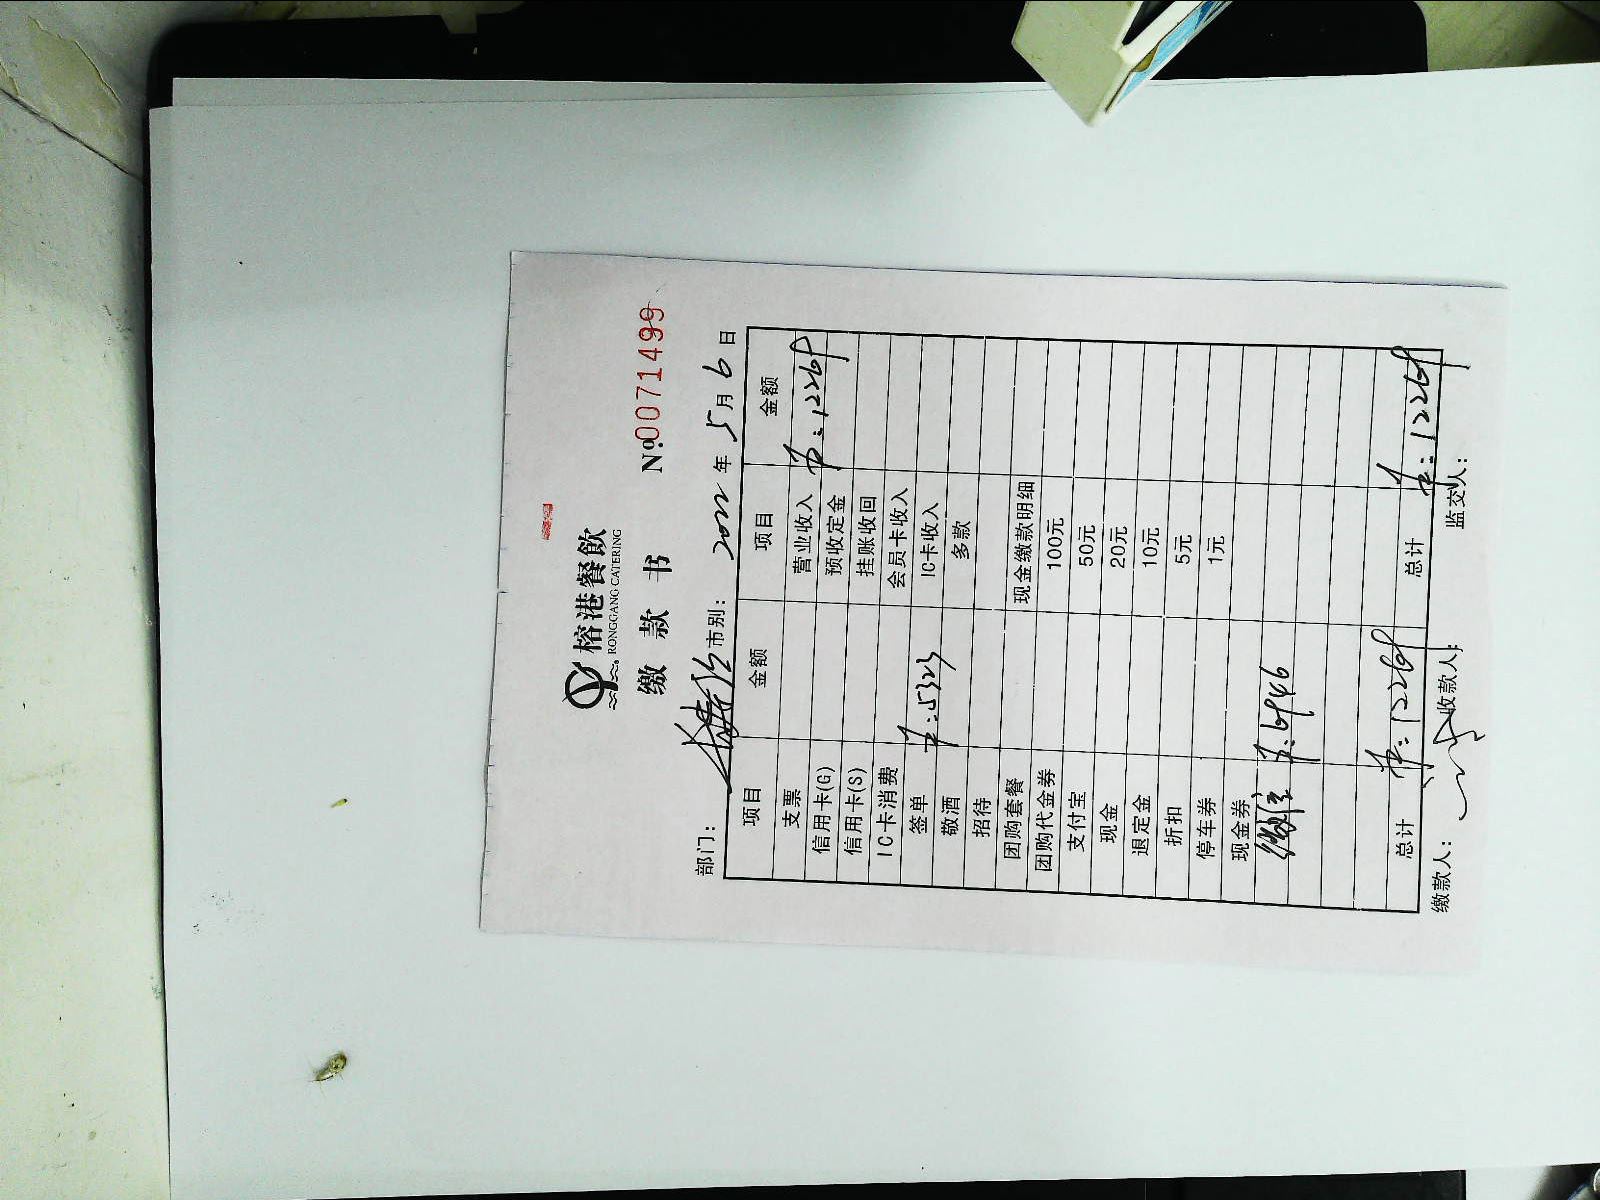 榕港餐飲
RONGGANG CATERING
缴款书
№0071499
部门: 市别: 2022年5月6日
项目 金额 项目 金额
支票 营业收入 ¥:12269
信用卡(G) 预收定金
信用卡(S) 挂账收回
IC卡消费 会员卡收入
签单 ¥:5323 IC卡收入
敬酒 多款
招待
团购套餐 现金缴款明细
团购代金券 100元
支付宝 50元
现金 20元
退定金 10元
折扣 5元
停车券 1元
现金券
微信 ¥:6946
总计 ¥:12269 总计 ¥:12269
缴款人: 收款人: 监交人: